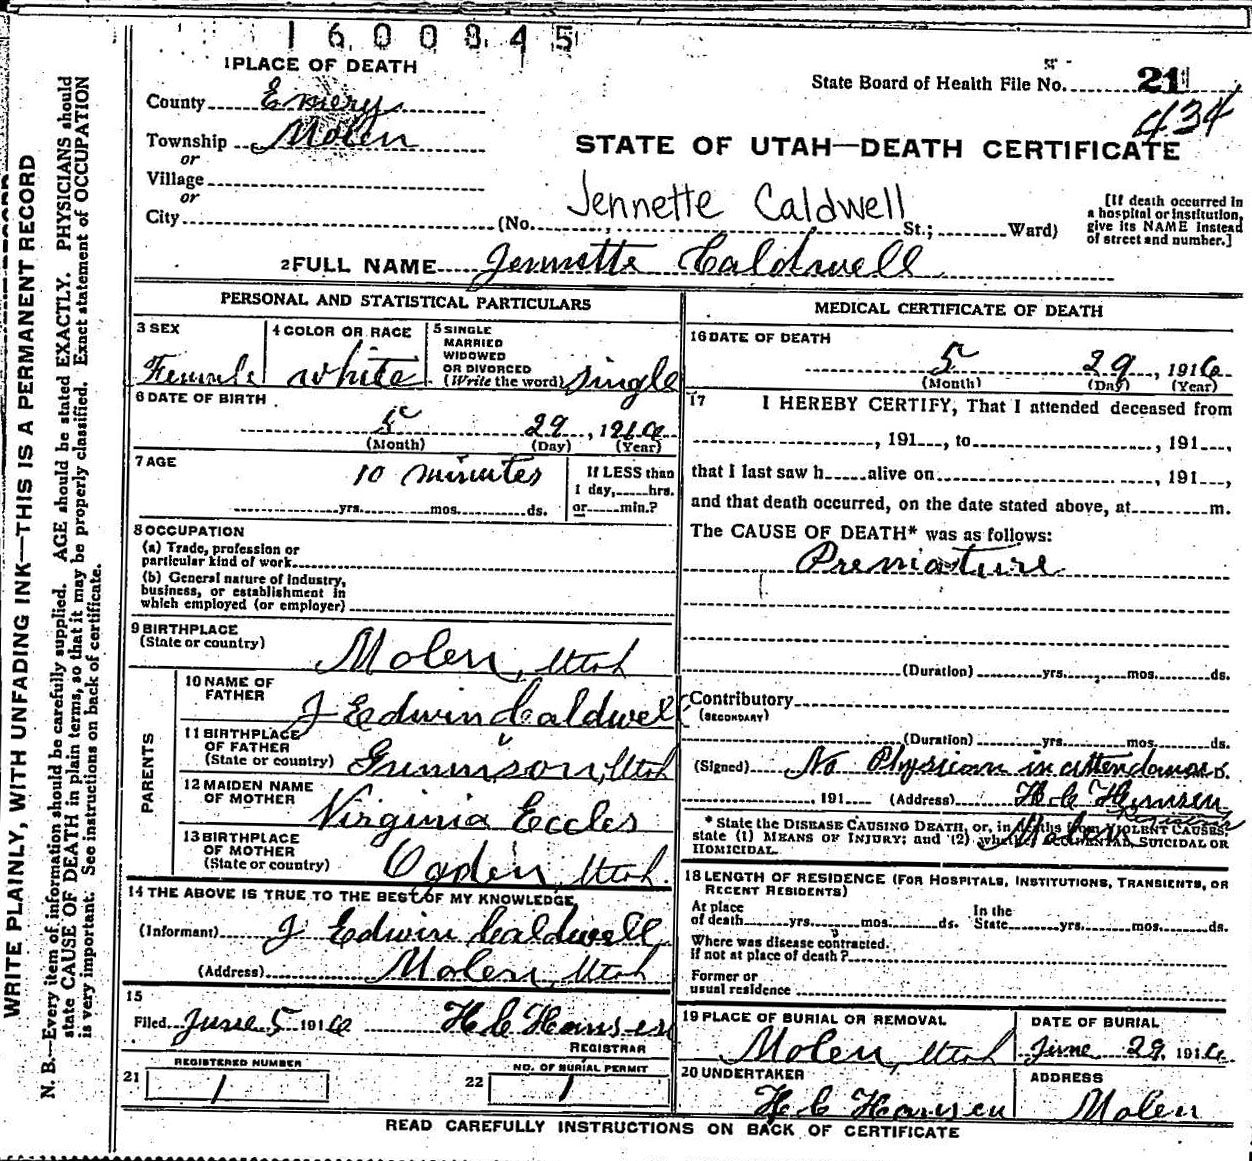 1600845
1 PLACE OF DEATH
State Board of Health File No. 21
434
County Emery
Township Molen
or
Village
or
City
STATE OF UTAH—DEATH CERTIFICATE
Jennette Caldwell
(No. , St.; Ward)
[If death occurred in
a hospital or institution,
give its NAME instead
of street and number.]
2 FULL NAME Jennette Caldwell
PERSONAL AND STATISTICAL PARTICULARS
3 SEX
Female
4 COLOR OR RACE
white
5 SINGLE
MARRIED
WIDOWED
OR DIVORCED
(Write the word) single
6 DATE OF BIRTH
5 29, 1916
(Month) (Day) (Year)
7 AGE
10 minutes
yrs. mos. ds.
If LESS than
1 day, hrs.
or min.?
8 OCCUPATION
(a) Trade, profession or
particular kind of work
(b) General nature of industry,
business, or establishment in
which employed (or employer)
9 BIRTHPLACE
(State or country) Molen, Utah
PARENTS
10 NAME OF
FATHER J Edwin Caldwell
11 BIRTHPLACE
OF FATHER
(State or country) Gunnison, Utah
12 MAIDEN NAME
OF MOTHER Virginia Eccles
13 BIRTHPLACE
OF MOTHER
(State or country) Ogden, Utah.
14 THE ABOVE IS TRUE TO THE BEST OF MY KNOWLEDGE,
(Informant) J Edwin Caldwell
(Address) Molen, Utah
15
Filed June 5 1916 H C Hansen
REGISTRAR
REGISTERED NUMBER
21 1
NO. OF BURIAL PERMIT
22 1
MEDICAL CERTIFICATE OF DEATH
16 DATE OF DEATH
5 29, 1916
(Month) (Day) (Year)
17 I HEREBY CERTIFY, That I attended deceased from
, 191 , to , 191 ,
that I last saw h alive on , 191 ,
and that death occurred, on the date stated above, at m.
The CAUSE OF DEATH* was as follows:
Premature
(Duration) yrs. mos. ds.
Contributory
(SECONDARY)
(Duration) yrs. mos. ds.
(Signed) No Physician in attendance
, 191 (Address) H C Hansen
Registrar
Molen
* State the DISEASE CAUSING DEATH, or, in deaths from VIOLENT CAUSES,
state (1) MEANS OF INJURY; and (2) whether ACCIDENTAL, SUICIDAL OR
HOMICIDAL.
18 LENGTH OF RESIDENCE (FOR HOSPITALS, INSTITUTIONS, TRANSIENTS, OR
RECENT RESIDENTS)
At place
of death yrs. mos. ds.
In the
State yrs. mos. ds.
Where was disease contracted.
If not at place of death?
Former or
usual residence
19 PLACE OF BURIAL OR REMOVAL
Molen, Utah
DATE OF BURIAL
June 29, 1916
20 UNDERTAKER
H C Hansen
ADDRESS
Molen
READ CAREFULLY INSTRUCTIONS ON BACK OF CERTIFICATE
WRITE PLAINLY, WITH UNFADING INK—THIS IS A PERMANENT RECORD
N. B.—Every item of information should be carefully supplied. AGE should be stated EXACTLY. PHYSICIANS should
state CAUSE OF DEATH in plain terms, so that it may be properly classified. Exact statement of OCCUPATION
is very important. See instructions on back of certificate.